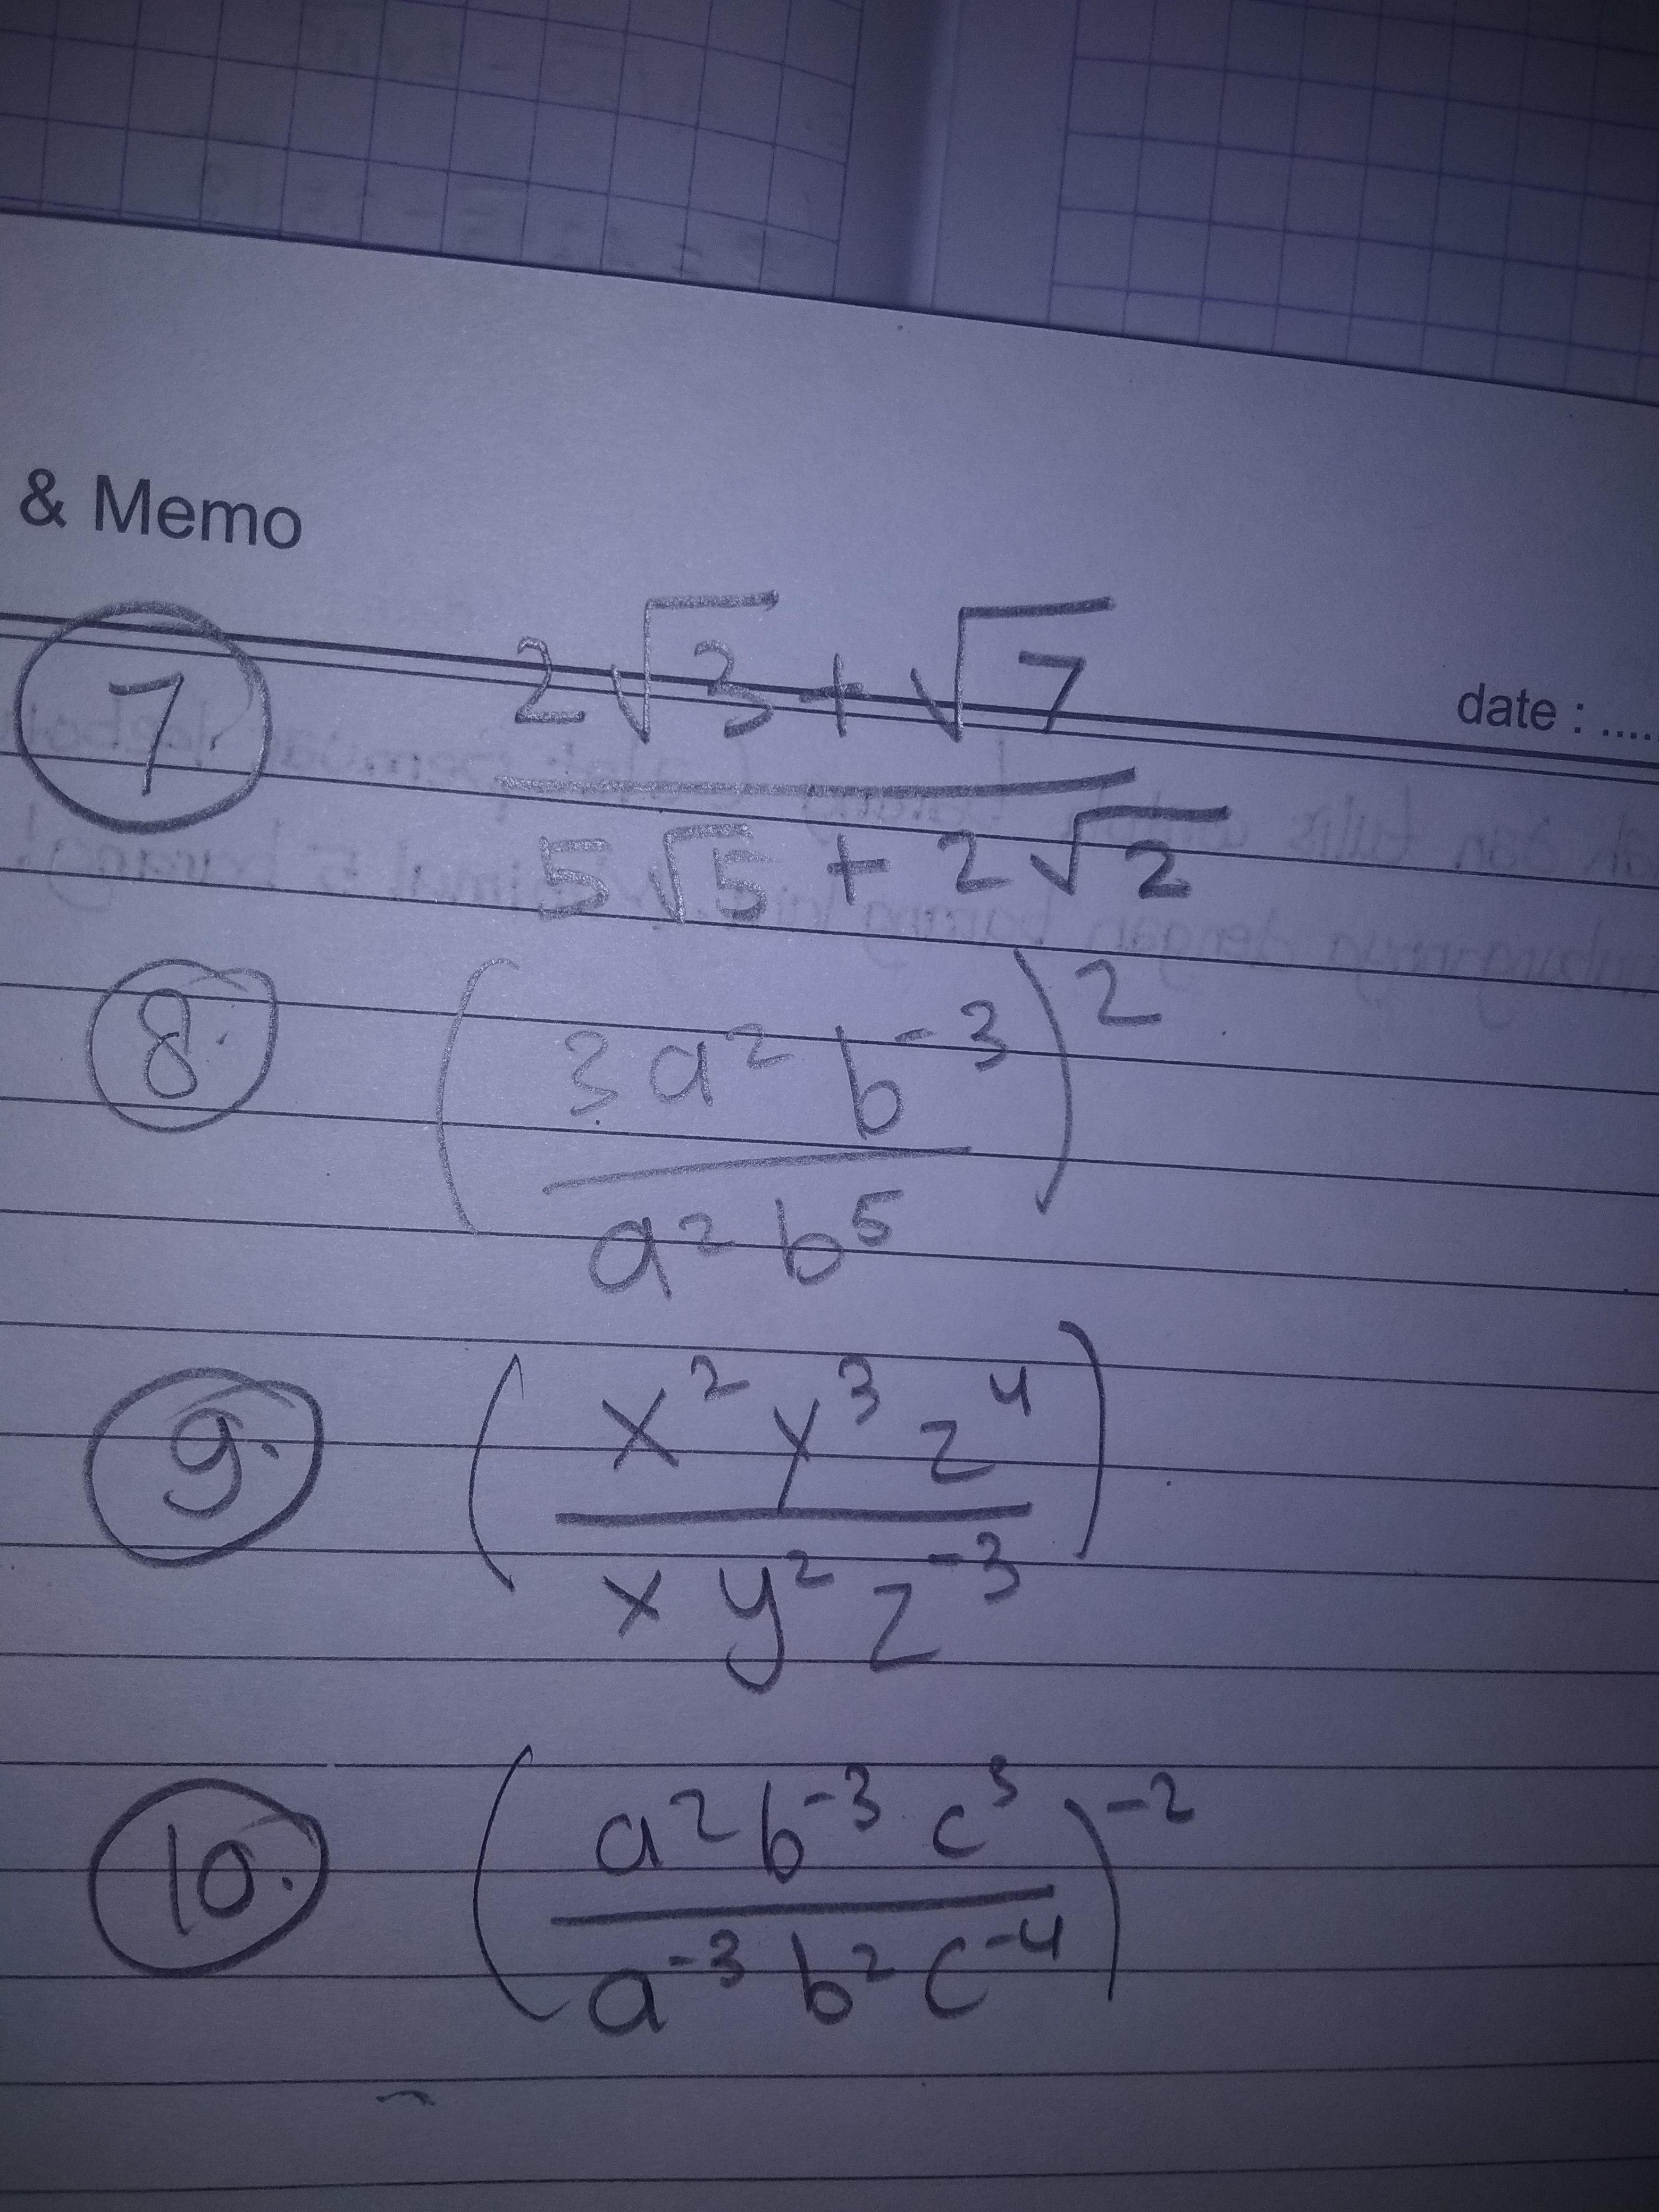 & Memo
date : ....
7. (2√3 + √7) / (5√5 + 2√2)
8. (3a² b⁻³ / a² b⁵)²
9. (x² y³ z⁴ / x y² z⁻³)
10. (a² b⁻³ c³ / a⁻³ b² c⁻⁴)⁻²